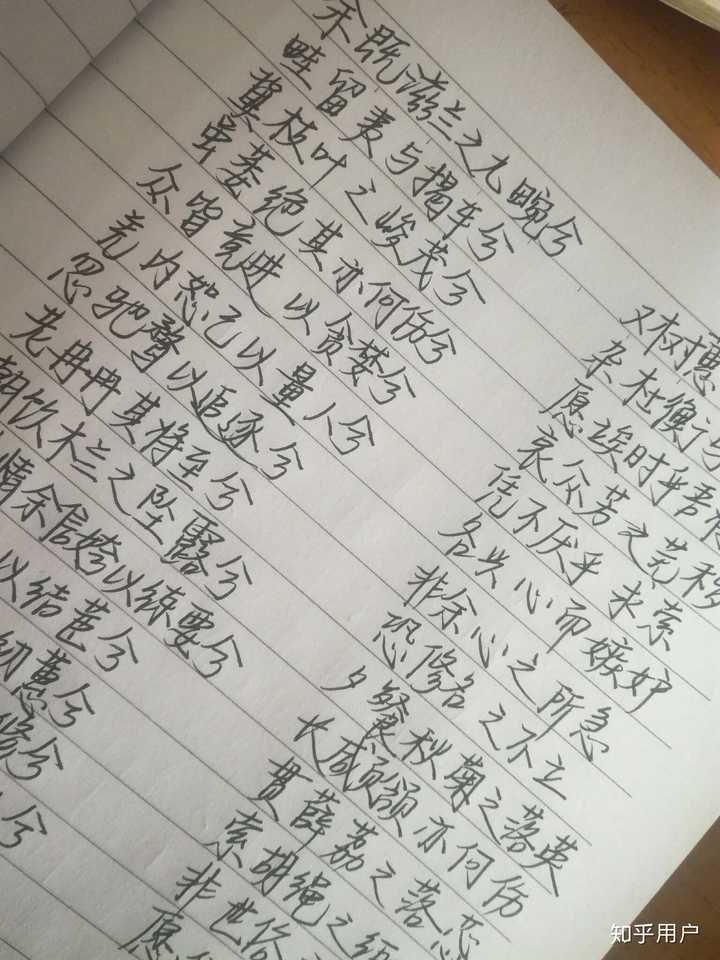 余既滋兰之九畹兮 又树蕙
畦留夷与揭车兮 杂杜衡与
冀枝叶之峻茂兮 愿竢时乎吾
虽萎绝其亦何伤兮 哀众芳之芜秽
众皆竞进以贪婪兮 凭不厌乎求索
羌内恕己以量人兮 各兴心而嫉妒
忽驰骛以追逐兮 非余心之所急
老冉冉其将至兮 恐修名之不立
朝饮木兰之坠露兮 夕餐秋菊之落英
情余信姱以练要兮 长顑颔亦何伤
以结茝兮 贯薜荔之落
纫蕙兮 索胡绳之
修兮 非世俗
兮 愿
知乎用户